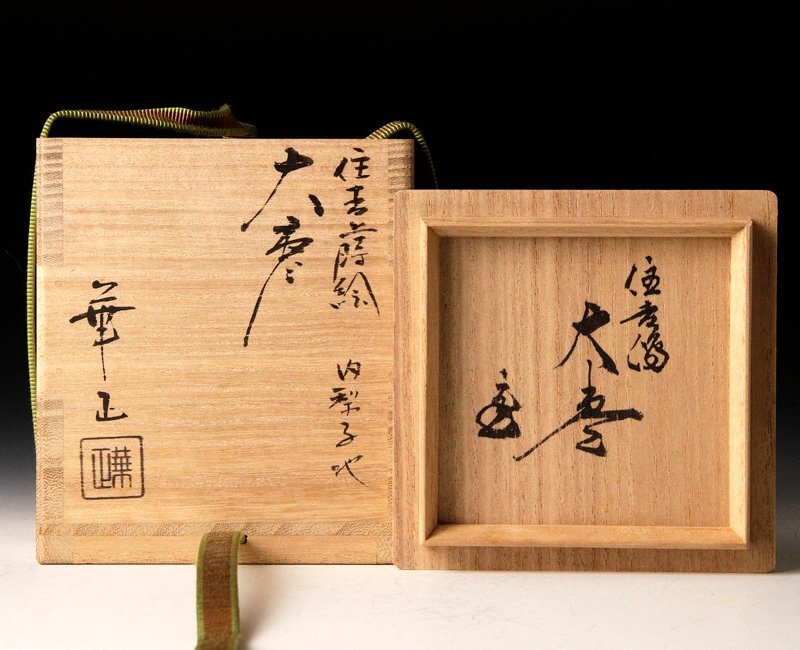 住吉蒔絵
大棗
内梨子地
華正
住吉
大棗